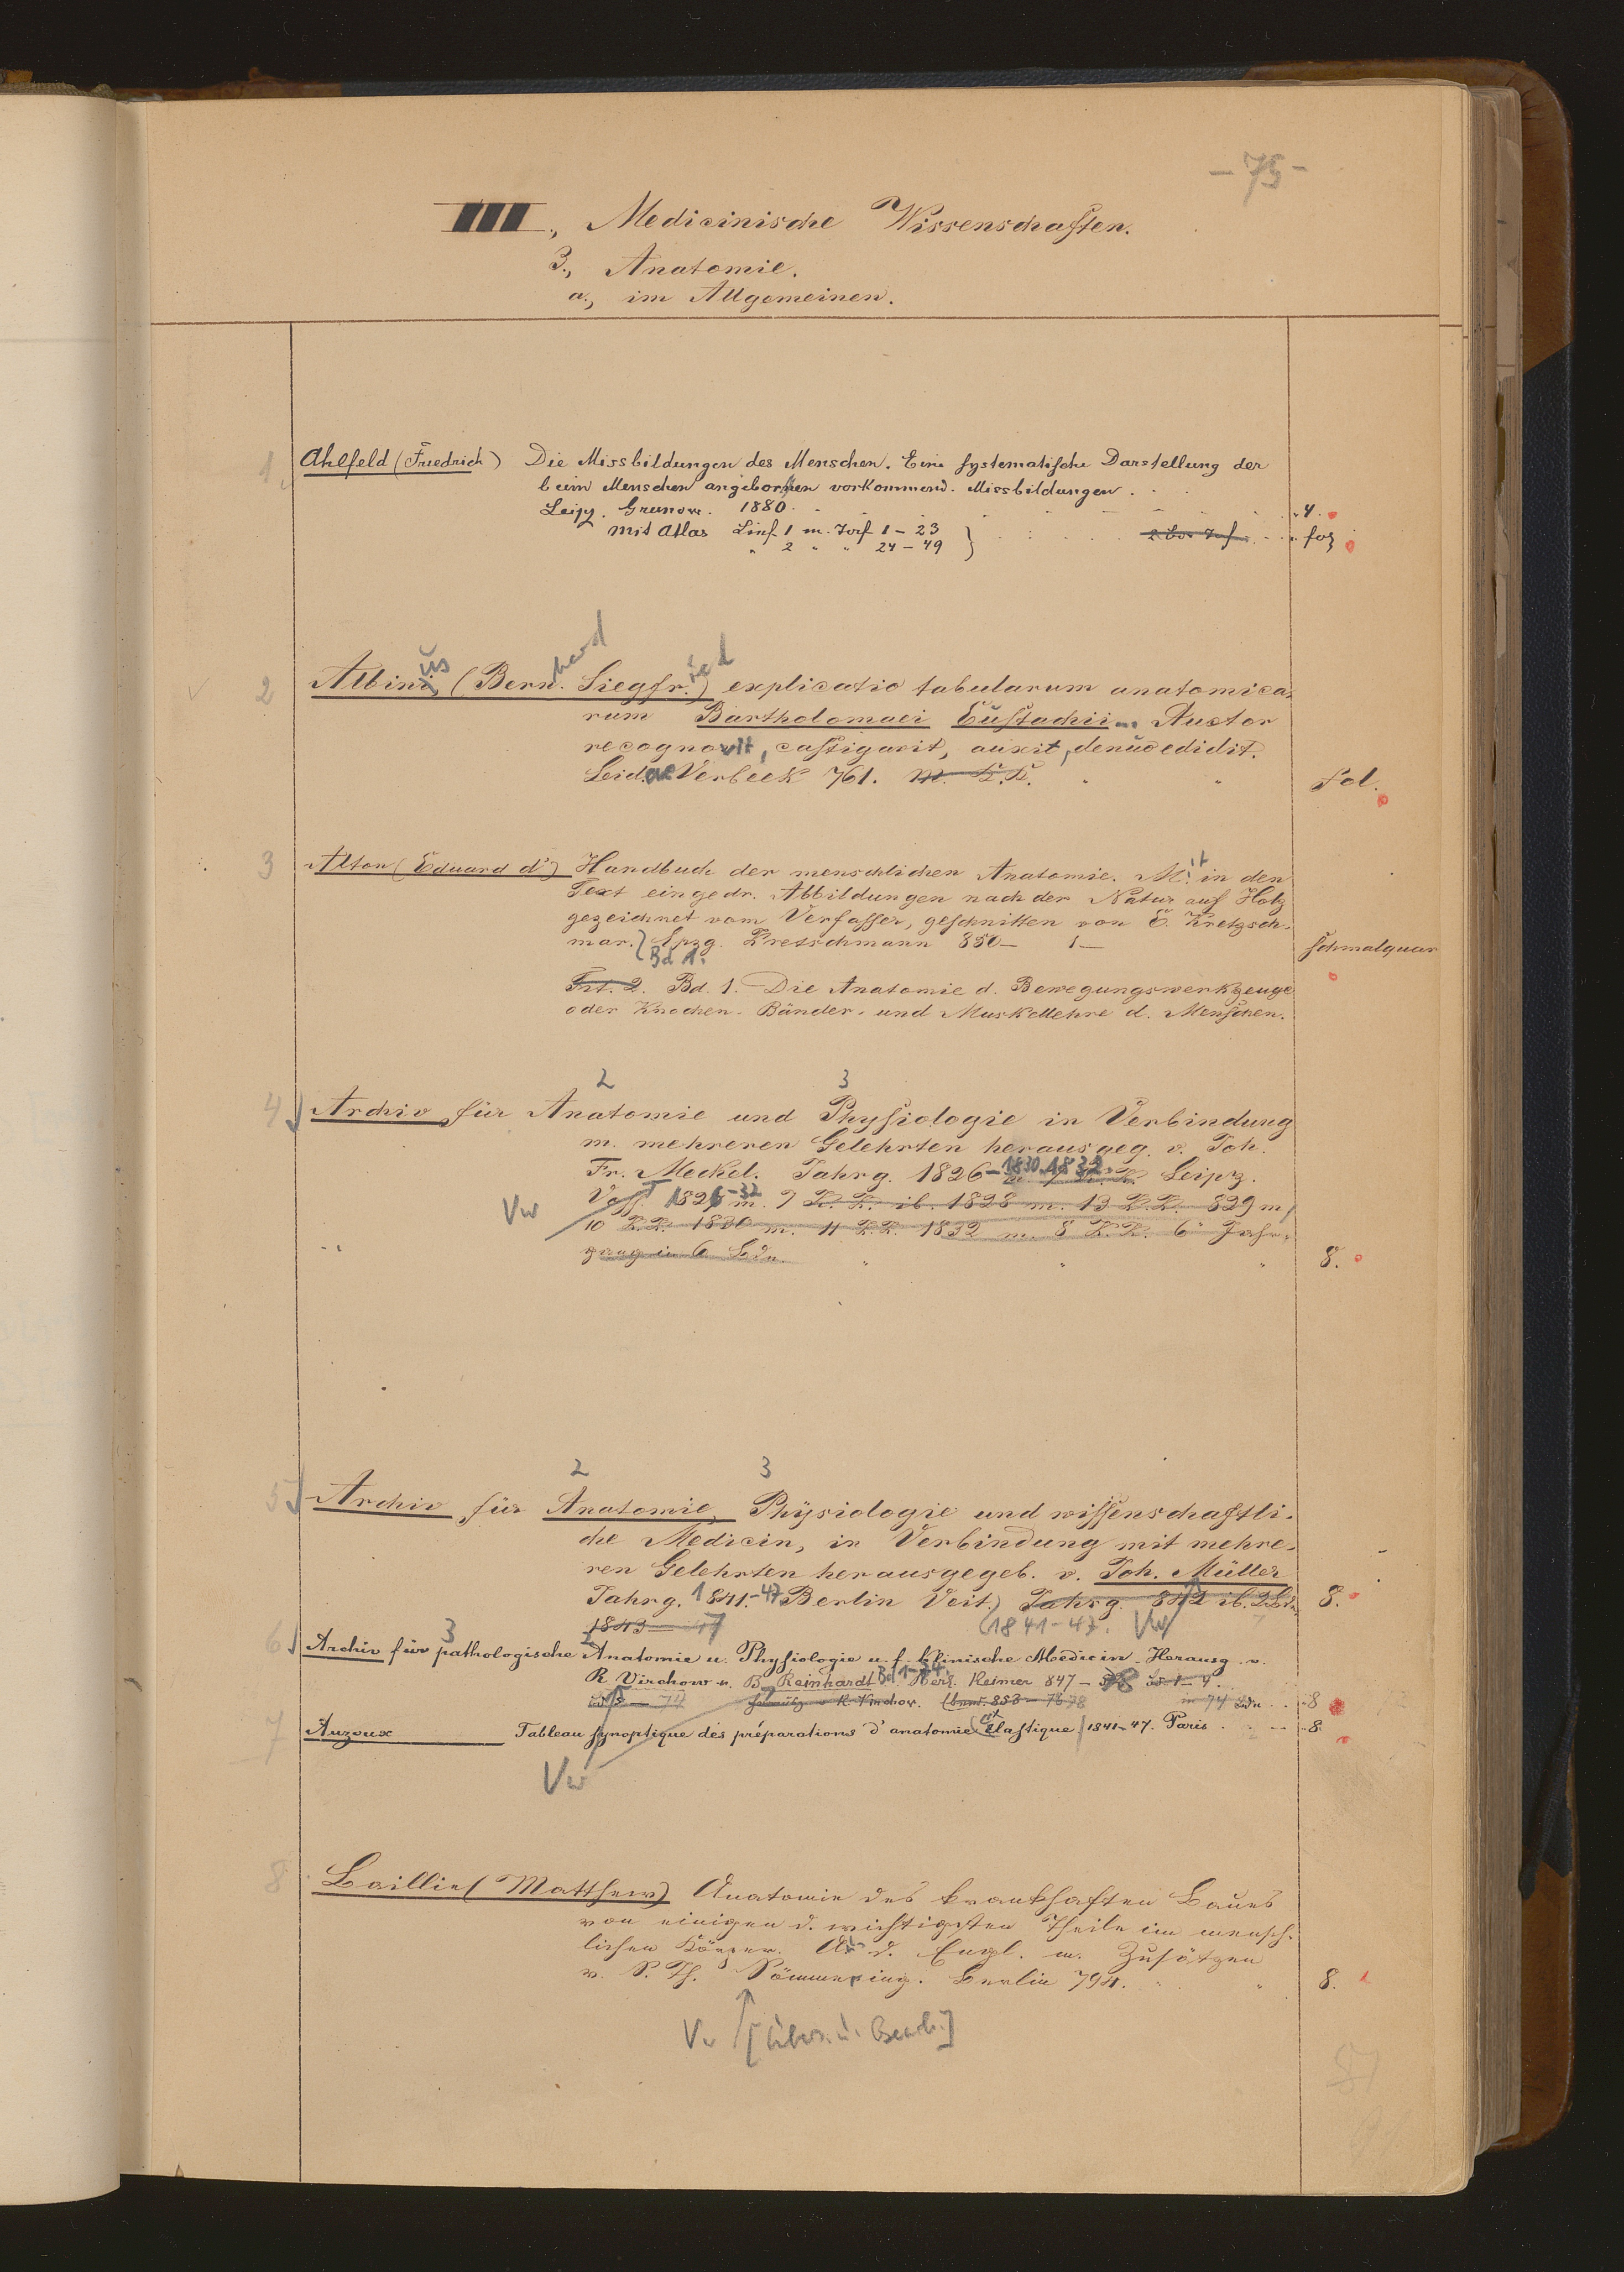 - 75 -
III., Medicinische Wissenschaften.
3., Anatomie.
a., im Allgemeinen.
1, Ahlfeld (Friedrich) Die Missbildungen des Menschen. Eine systematische Darstellung der
beim Menschen angeboren vorkommend. Missbildungen.
Leipz. Grunow. 1880. 4.
mit Atlas Linf. 1 m. Taf. 1-23
" 2 " " 24-49 } fol
2 Albinus (Bernhard Siegfried) explicatio tabularum anatomica-
rum Bartholomaei Eustachii... Auctor
recognovit, castigavit, auxit, denuo edidit.
Leidae Verbeek 761. Fol.
3 Alton (Eduard d') Handbuch der menschlichen Anatomie. Mit in den
Text eingedr. Abbildungen nach der Natur auf Holz
gezeichnet vom Verfasser, geschnitten von E. Kretzsch-
mar. Lpzg. Kretschmann 850- 1- Schmalquar
Bd 1.
Bd. 1. Die Anatomie d. Bewegungswerkzeuge
oder Knochen- Bänder- und Muskellehre d. Menschen.
2 3
4 Archiv für Anatomie und Physiologie in Verbindung
m. mehreren Gelehrten herausgeg. v. Joh.
Fr. Meckel. Jahrg. 1826-1830. 1832. Leipz.
Voss. 1826-32 m. 9 K.K. ib. 1828 m. 13 K.K. 829 m/
Vw 10 K.K. 1830 m. 11 K.K. 1832 m. 8 K.K. 6 Jahr-
gang in 6 Bdn. 8.
2 3
5 Archiv für Anatomie, Physiologie und wissenschaftli-
che Medicin, in Verbindung mit mehre-
ren Gelehrten herausgegeb. v. Joh. Müller
Jahrg. 1841.-47 Berlin Veit.) Jahrg. 842 ib. 8.
1843-47 (1841-47. Vw
3 2
6 Archiv für pathologische Anatomie u. Physiologie u. f. klinische Medicin. Herausg. v.
R. Virchow u. B. Reinhardt Bd 1-74. Berl. Reimer 847-78
R. Virchow. 853- in 74 Bdn 8
7 Auzoux Tableau synoptique des préparations d'anatomie clastique 1841-47. Paris 8
Vw
8 Baillie (Matthew) Anatomie des krankhaften Baues
von einigen d. wichtigsten Theile im mensch-
lichen Körper. A. d. Engl. m. Zusätzen
v. S. Th. Sömmering. Berlin 794. 8.
Vw [Übers. u. Bearb.]